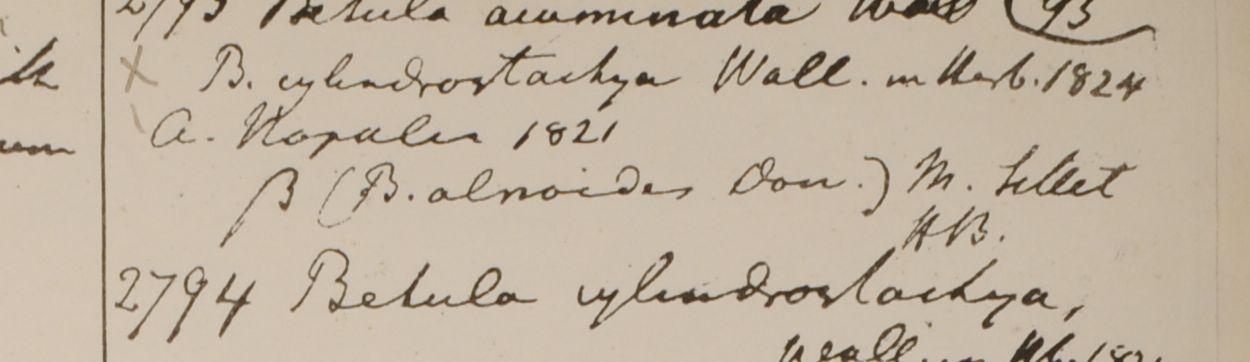 2793 Betula acuminata Wall 93
x B. cylindrostachya Wall. in Herb. 1824
a. Napalia 1821
β (B. alnoides Don.) M. Sillet
HB.
2794 Betula cylindrostachya,
Wall in Hb. 182